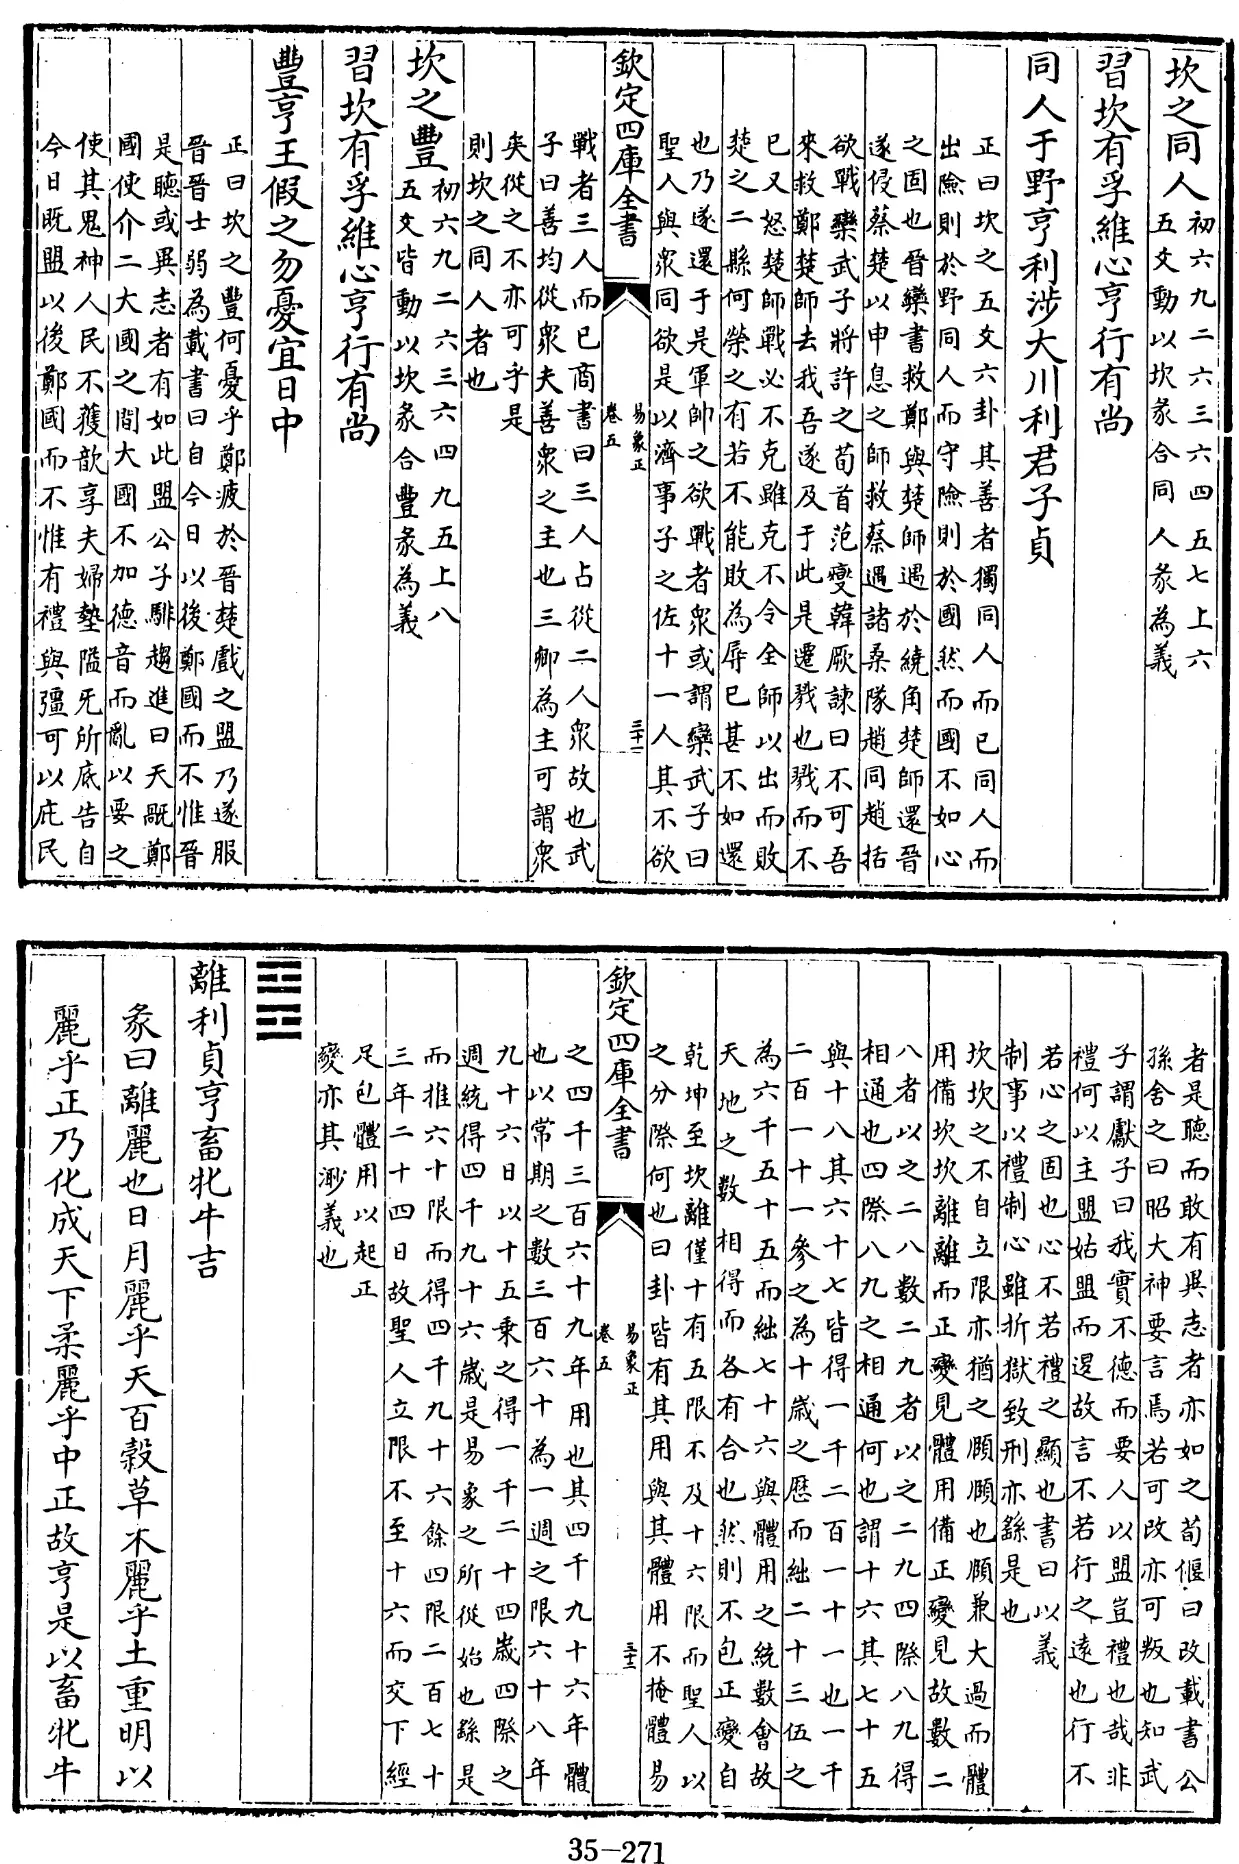 坎之同人初六九二六三六四五七上六
五爻動以坎彖合同人彖為義
習坎有孚維心亨行有尚
同人于野亨利涉大川利君子貞
正曰坎之五爻六卦其善者獨同人而已同人而
出險則於野同人而守險則於國然而國不如心
之固也晉欒書救鄭與楚師遇於繞角楚師還晉
遂侵蔡楚以申息之師救蔡遇諸桑隧趙同趙括
欲戰欒武子將許之荀首范燮韓厥諫曰不可吾
來救鄭楚師去我吾遂及于此是遷戮也戮而不
已又怒楚師戰必不克雖克不令全師以出而敗
楚之二縣何榮之有若不能敗為辱已甚不如還
也乃遂還于是軍帥之欲戰者衆或謂欒武子曰
聖人與衆同欲是以濟事子之佐十一人其不欲
欽定四庫全書
易象正
卷五
三十一
戰者三人而已商書曰三人占從二人衆故也武
子曰善均從衆夫善衆之主也三卿為主可謂衆
矣從之不亦可乎是
則坎之同人者也
坎之豐初六九二六三六四九五上八
五爻皆動以坎彖合豐彖為義
習坎有孚維心亨行有尚
豐亨王假之勿憂宜日中
正曰坎之豐何憂乎鄭疲於晉楚戲之盟乃遂服
晉晉士弱為載書曰自今日以後鄭國而不惟晉
是聽或異志者有如此盟公子騑趨進曰天旤鄭
國使介二大國之間大國不加德音而亂以要之
使其鬼神人民不獲歆享夫婦墊隘旡所底告自
今日既盟以後鄭國而不惟有禮與彊可以庇民
者是聽而敢有異志者亦如之荀偃曰改載書公
孫舍之曰昭大神要言焉若可改亦可叛也知武
子謂獻子曰我實不德而要人以盟豈禮也哉非
禮何以主盟姑盟而退故言不若行之遠也行不
若心之固也心不若禮之顯也書曰以義
制事以禮制心雖折獄致刑亦繇是也
坎坎之不自立限亦猶之頤頤也頤兼大過而體
用備坎坎離離而正變見體用備正變見故數二
八者以之二八數二九者以之二九四際八九得
相通也四際八九之相通何也謂十六其七十五
與十八其六十七皆得一千二百一十一也一千
二百一十一參之為十歲之歷而絀二十三伍之
為六千五十五而絀七十六與體用之統數會故
天地之數相得而各有合也然則不包正變自
乾坤至坎離僅十有五限不及十六限而聖人以
之分際何也曰卦皆有其用與其體用不掩體易
欽定四庫全書
易象正
卷五
三十二
之四千三百六十九年用也其四千九十六年體
也以常期之數三百六十為一週之限六十八年
九十六日以十五乘之得一千二十四歲四際之
週統得四千九十六歲是易象之所從始也繇是
而推六十限而得四千九十六餘四限二百七十
三年二十四日故聖人立限不至十六而交下經
足包體用以起正
變亦其渺義也
離利貞亨畜牝牛吉
彖曰離麗也日月麗乎天百穀草木麗乎土重明以
麗乎正乃化成天下柔麗乎中正故亨是以畜牝牛
35-271